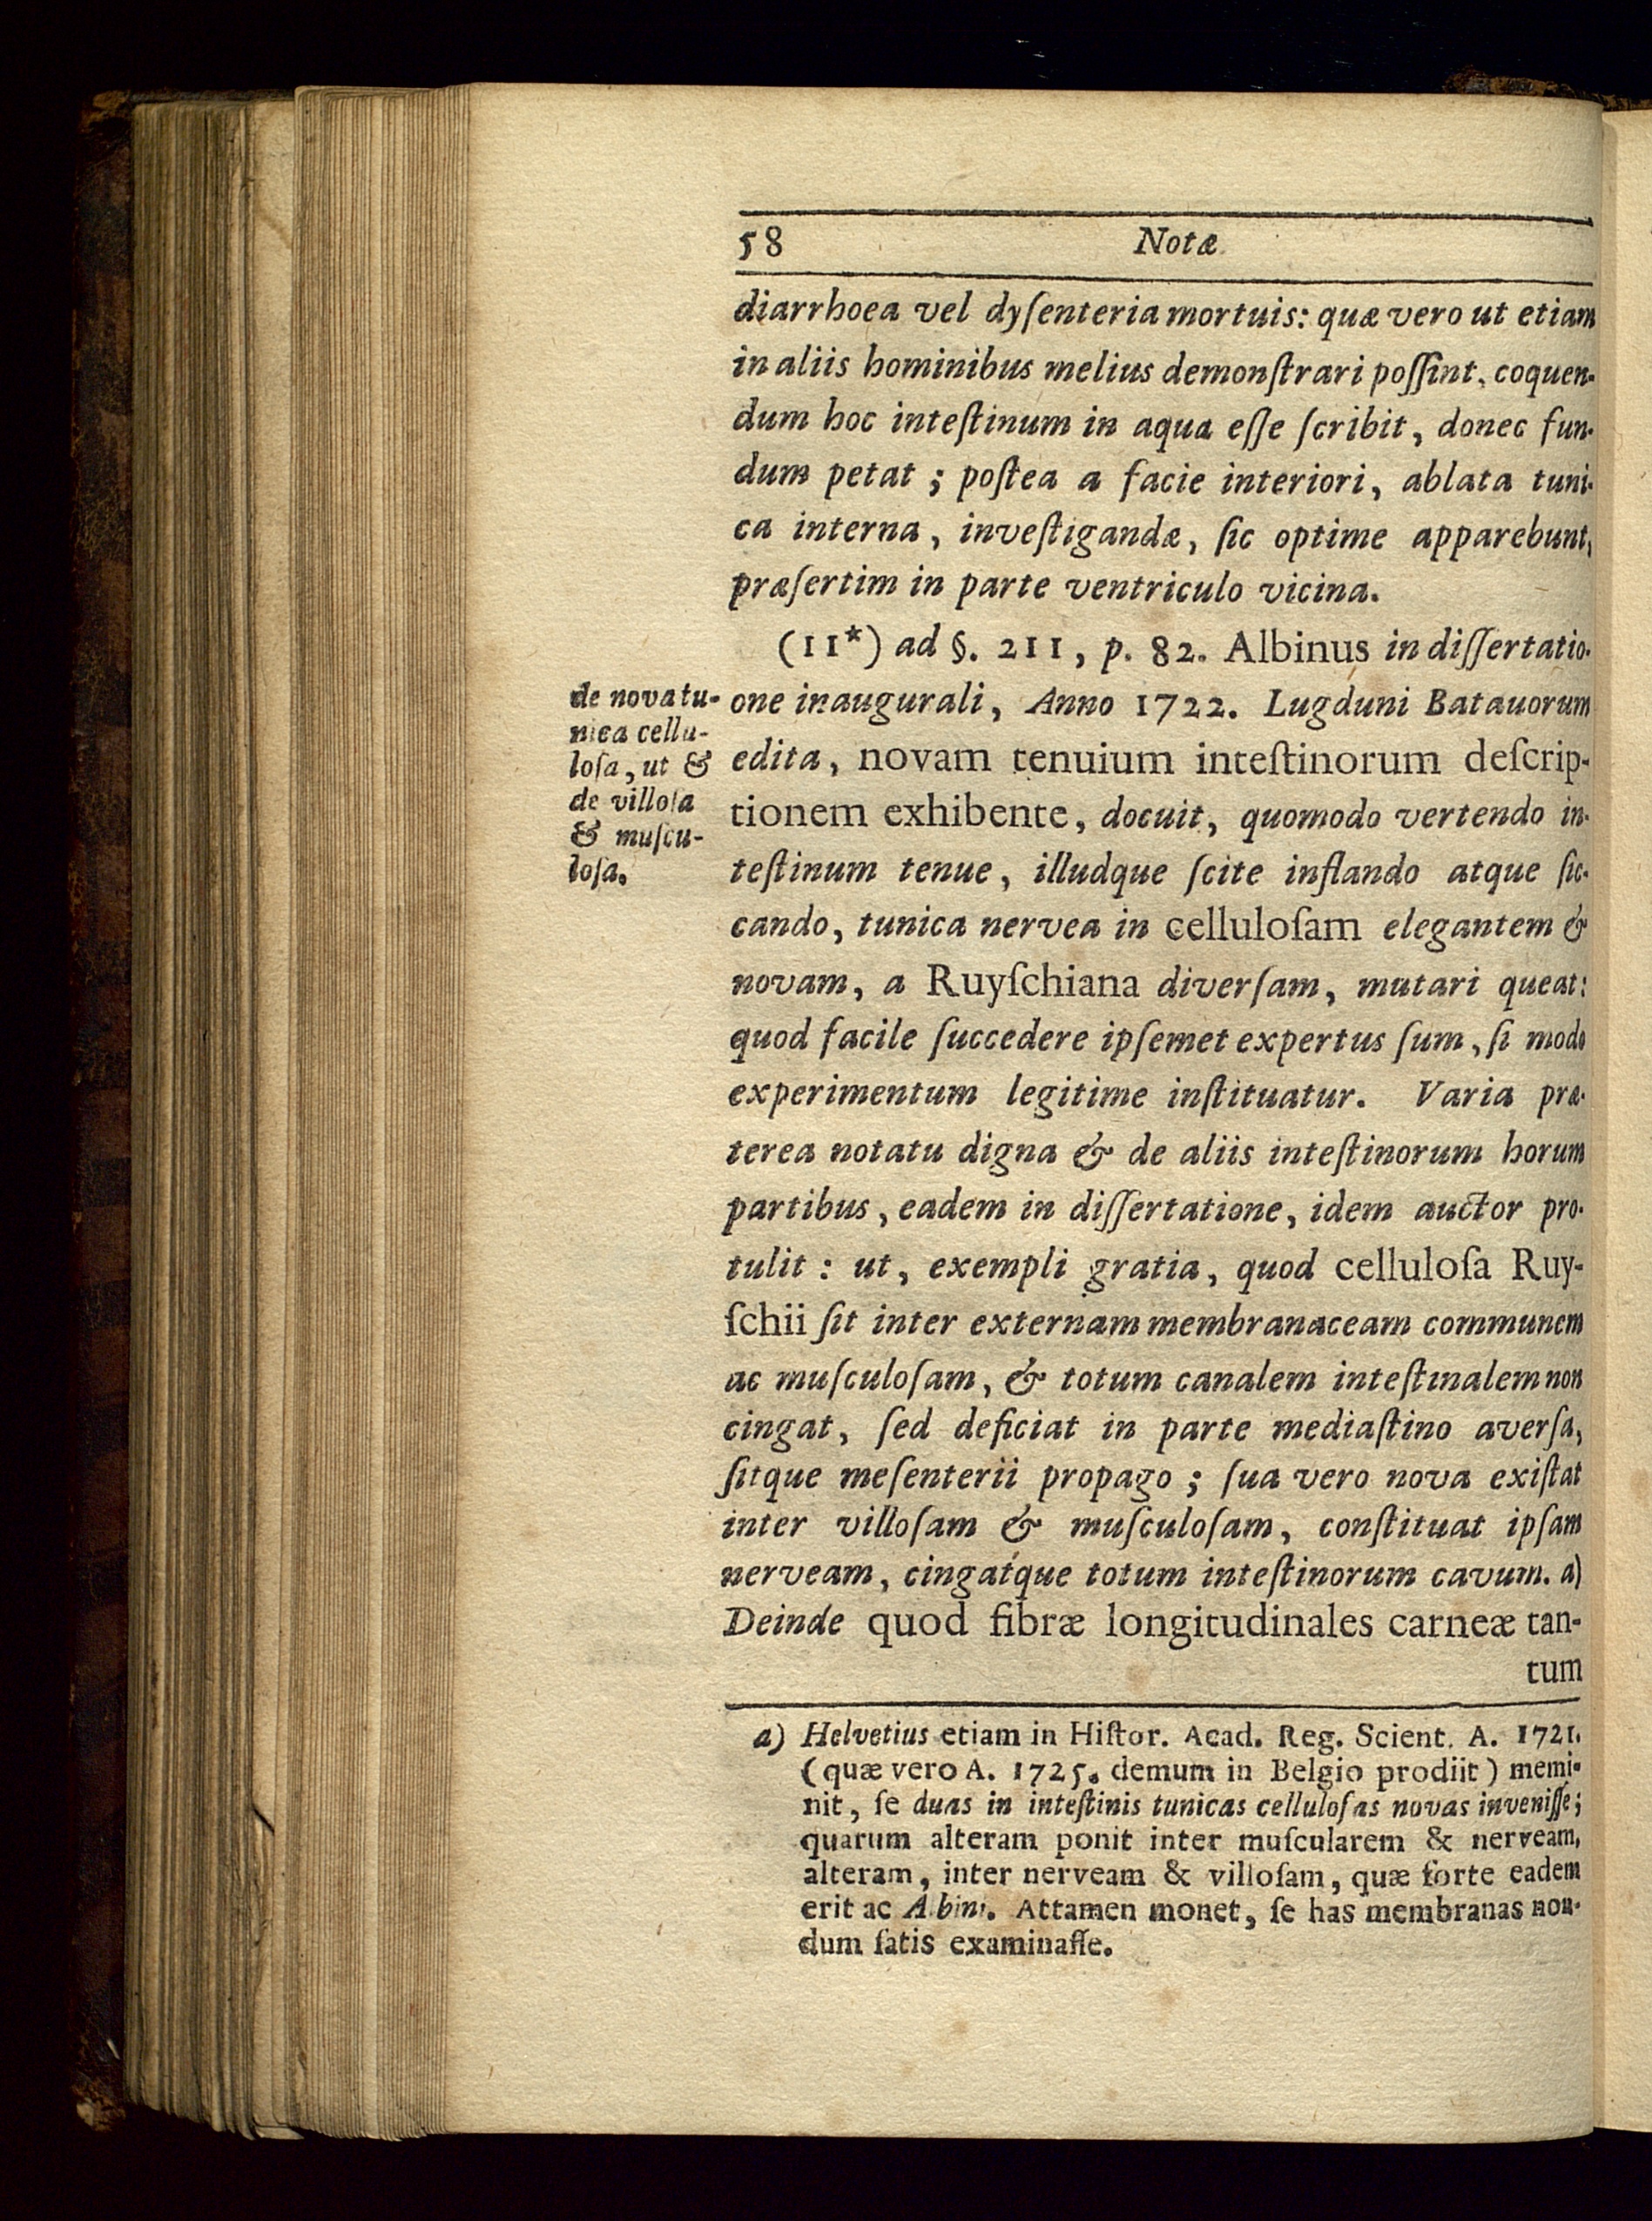 58 Notæ
diarrhoea vel dyſenteria mortuis: quæ vero ut etiam
in aliis hominibus melius demonſtrari poſſint, coquen-
dum hoc inteſtinum in aqua eſſe ſcribit, donec fun-
dum petat; poſtea a facie interiori, ablata tuni-
ca interna, inveſtigandæ, ſic optime apparebunt,
præſertim in parte ventriculo vicina.
(11*) ad §. 211, p. 82. Albinus in diſſertatio-
one inaugurali, Anno 1722. Lugduni Batauorum
edita, novam tenuium inteſtinorum deſcrip-
tionem exhibente, docuit, quomodo vertendo in-
teſtinum tenue, illudque ſcite inflando atque ſic-
cando, tunica nervea in celluloſam elegantem &
novam, a Ruyſchiana diverſam, mutari queat:
quod facile ſuccedere ipſemet expertus ſum, ſi modo
experimentum legitime inſtituatur. Varia præ-
terea notatu digna & de aliis inteſtinorum horum
partibus, eadem in diſſertatione, idem auctor pro-
tulit: ut, exempli gratia, quod celluloſa Ruy-
ſchii ſit inter externam membranaceam communem
ac muſculoſam, & totum canalem inteſtinalem non
cingat, ſed deficiat in parte mediaſtino averſa,
ſitque meſenterii propago; ſua vero nova exiſtat
inter villoſam & muſculoſam, conſtituat ipſam
nerveam, cingatque totum inteſtinorum cavum. a)
Deinde quod fibræ longitudinales carneæ tan-
tum
de nova tu-
nica cellu-
loſa, ut &
de villoſa
& muſcu-
loſa.
a) Helvetius etiam in Hiſtor. Acad. Reg. Scient. A. 1721.
(quæ vero A. 1725. demum in Belgio prodiit) memi-
nit, ſe duas in inteſtinis tunicas celluloſas novas inveniſſe;
quarum alteram ponit inter muſcularem & nerveam,
alteram, inter nerveam & villoſam, quæ forte eadem
erit ac Albini. Attamen monet, ſe has membranas non-
dum ſatis examinaſſe.